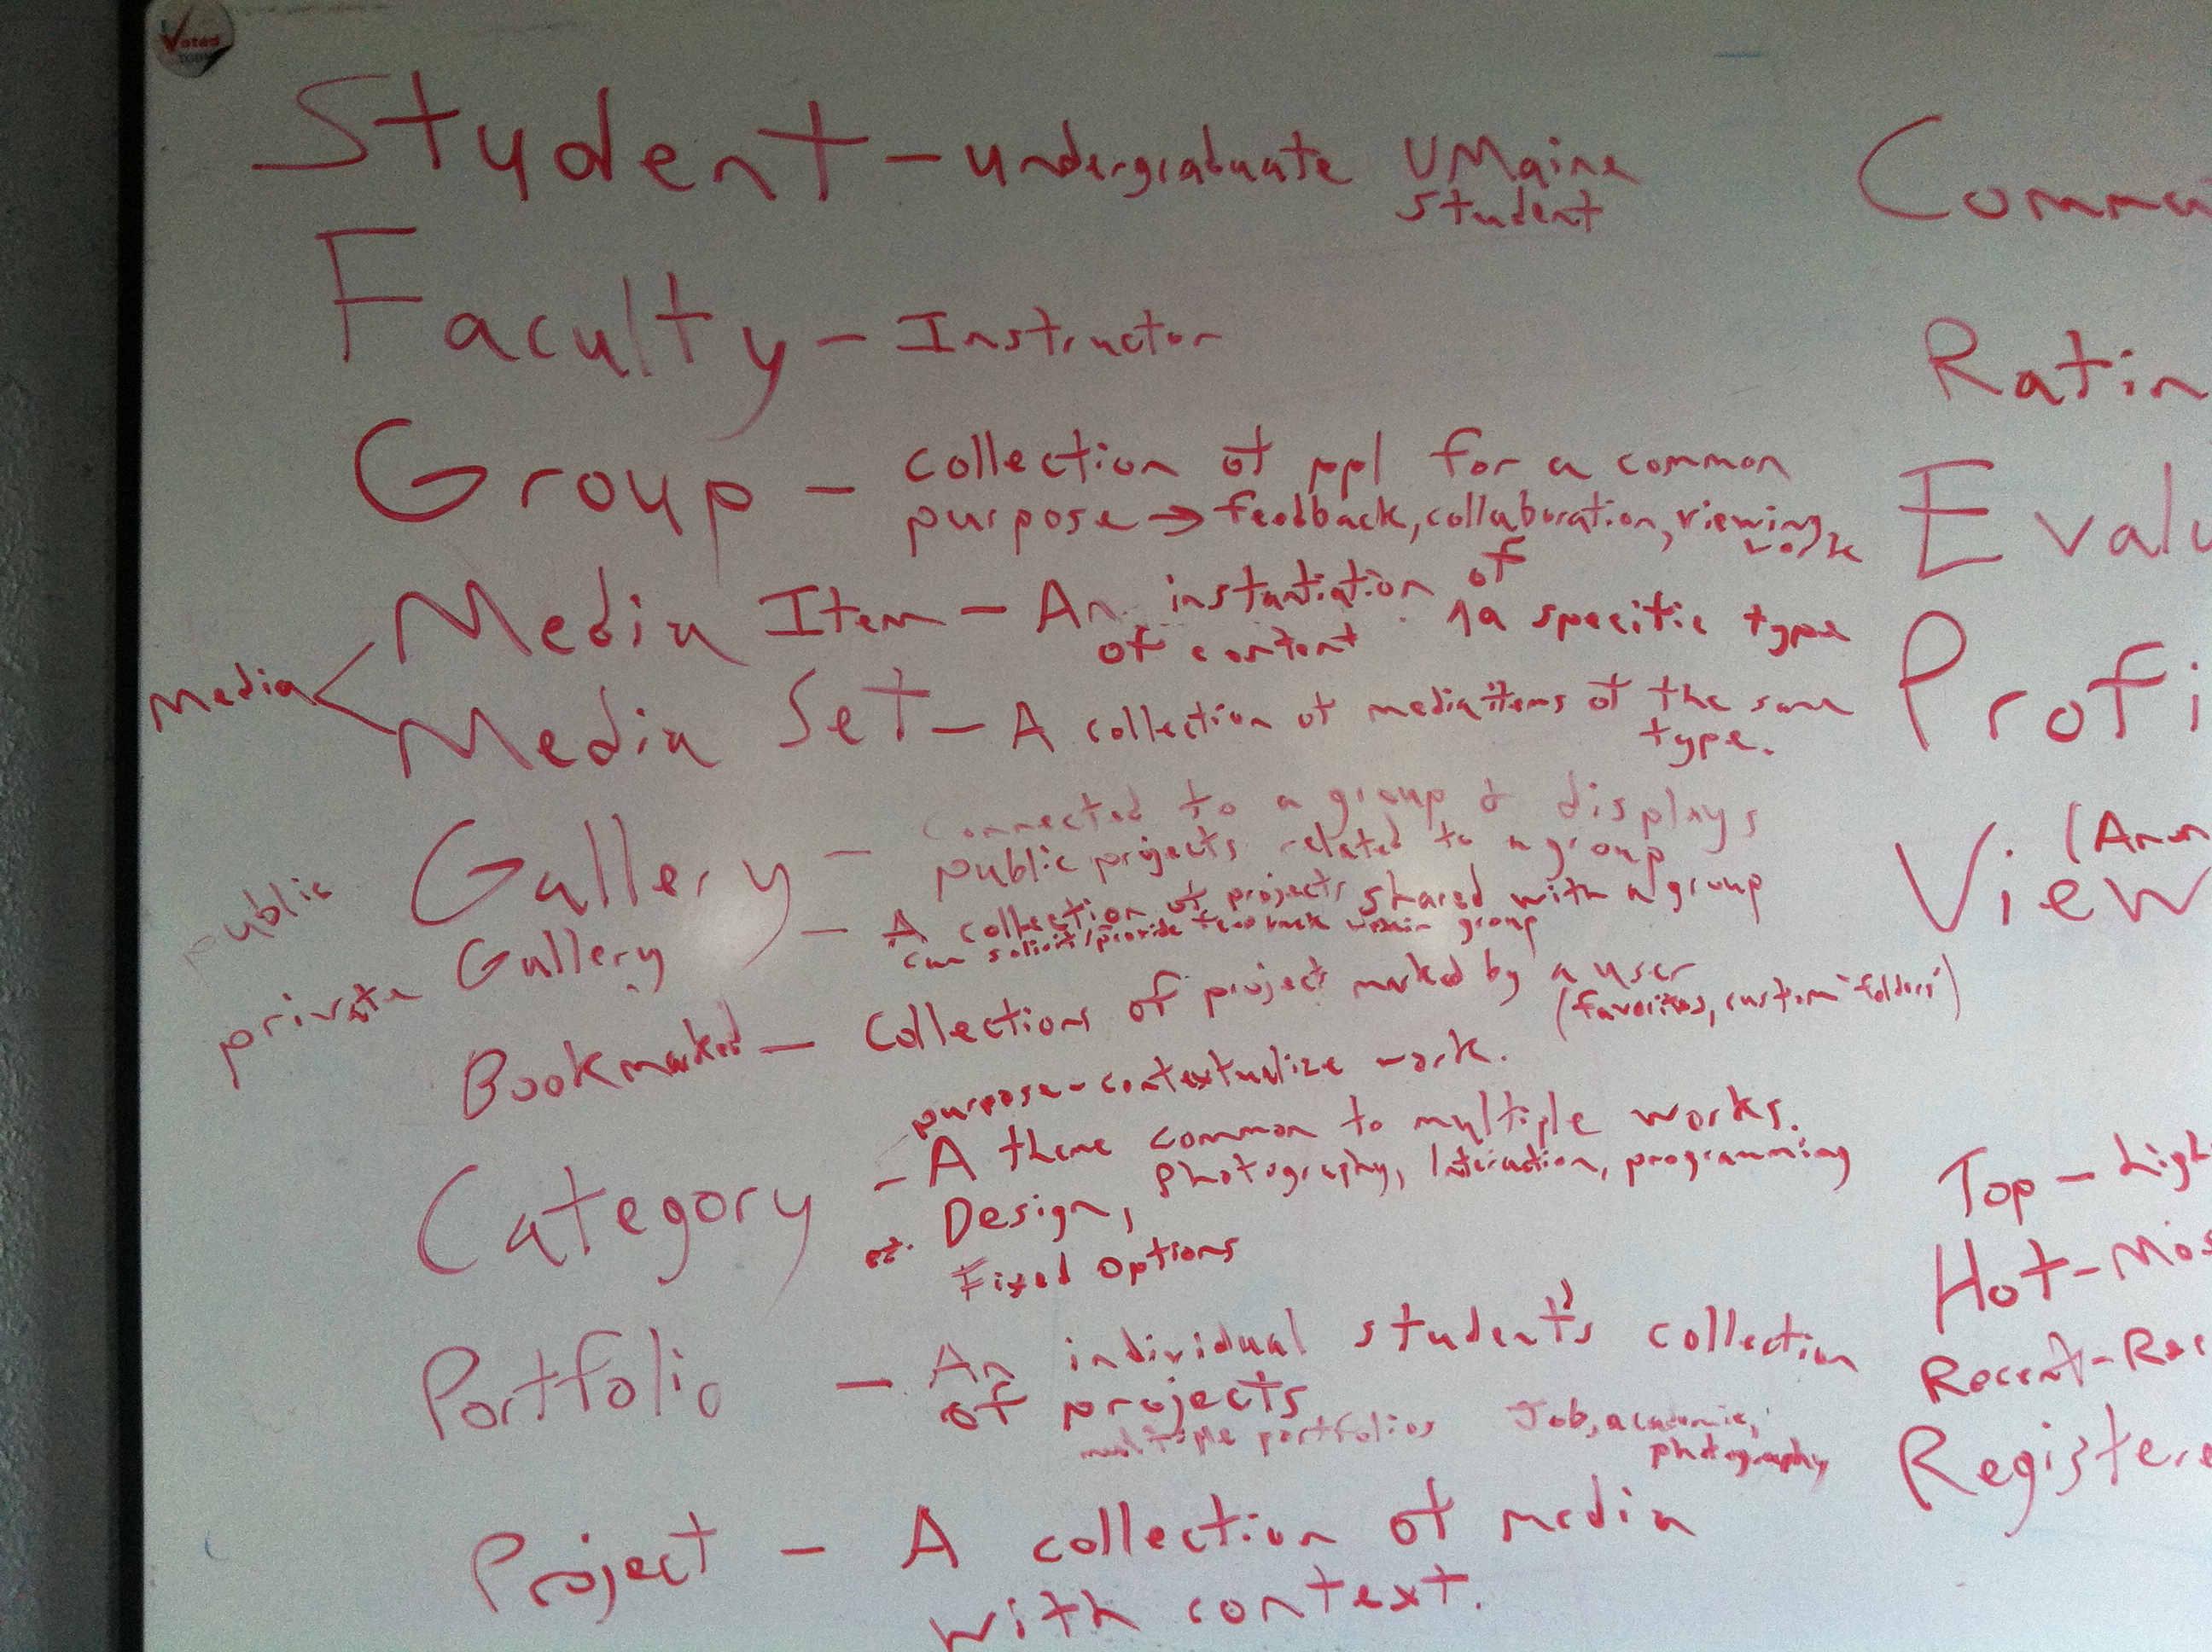 Voted
Student – undergraduate UMaine
student
Faculty – Instructor
Group – collection of ppl for a common
purpose → feedback, collaboration, viewing
work
Media
Media Item – An instantiation of
1a specific type
of content
Media Set – A collection of media items of the same
type.
public Gallery – Connected to a group & displays
public projects related to a group
private Gallery – A collection of projects shared with a group
can solicit/provide feedback within group
Bookmarked – Collections of project marked by a user
(favorites, custom "folders")
purpose - contextualize work.
Category – A theme common to multiple works.
Design, Photography, Interaction, programming
Fixed Options
Portfolio – An individual student's collection
of projects
multiple portfolios Job, academic,
photography
Project – A collection of media
with context.
Commu
Ratin
Evalu
Profi
(Anon
View
Top –
Hot – Mos
Recent – Rec
Registere